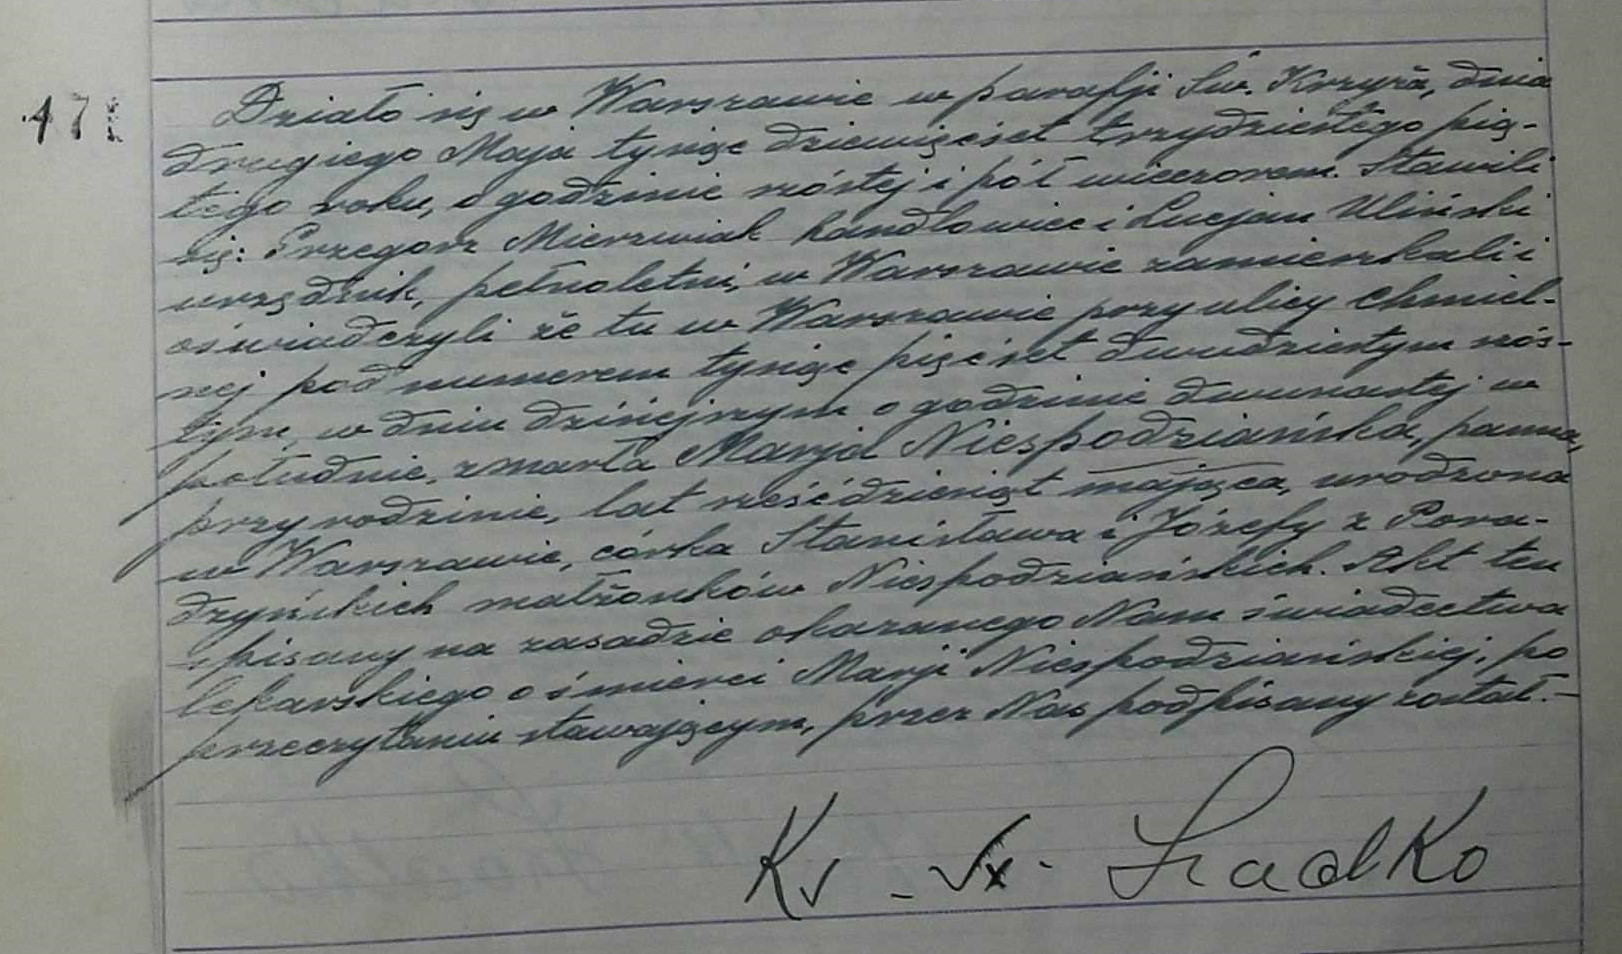 471
Działo się w Warszawie w parafji Św. Krzyża, dnia
drugiego Maja tysiąc dziewięćset trzydziestego pią-
tego roku, o godzinie szóstej i pół wieczorem. Stawili
się: Grzegorz Mierzwiak handlowiec i Lucjan Uliński
urzędnik, pełnoletni, w Warszawie zamieszkali i
oświadczyli że tu w Warszawie przy ulicy Chmiel-
nej pod numerem tysiąc pięćset dwudziestym szós-
tym, w dniu dzisiejszym o godzinie dwunastej w
południe, zmarła Marja Niespodziańska, panna,
przy rodzinie, lat sześćdziesiąt mająca, urodzona
w Warszawie, córka Stanisława i Józefy z Pora-
dzyńskich małżonków Niespodziańskich. Akt ten
spisany na zasadzie okazanego Nam świadectwa
lekarskiego o śmierci Marji Niespodziańskiej, po
przeczytaniu stawającym, przez Nas podpisany został.-